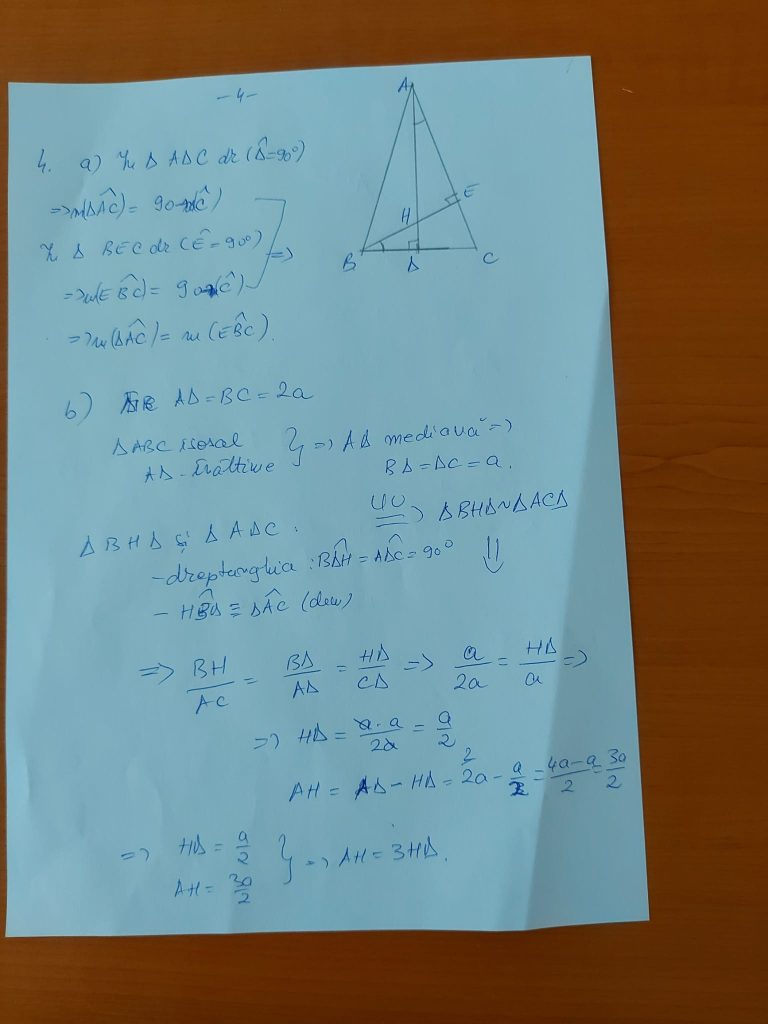 - 4 -
4. a) În Δ ADC dr (D̂=90°)
=> m(DÂC) = 90-m(Ĉ)
În Δ BEC dr (Ê=90°) =>
=> m(EB̂C) = 90-m(Ĉ)
=> m(DÂC) = m(EB̂C).
A
E
H
B
D
C
b) AD = BC = 2a
ΔABC isoscel
AD - înălțime } => AD mediană =>
BD = DC = a.
Δ BHD și Δ ADC :
UU => ΔBHD ~ ΔACD
- dreptunghia : BD̂H = AD̂C = 90°
- HB̂D ≡ DÂC (dem)
=> BH/AC = BD/AD = HD/CD => a/2a = HD/a =>
=> HD = a·a/2a = a/2
AH = AD - HD = 2a - a/2 = 4a-a/2 = 3a/2
=> HD = a/2
AH = 3a/2 } => AH = 3HD.